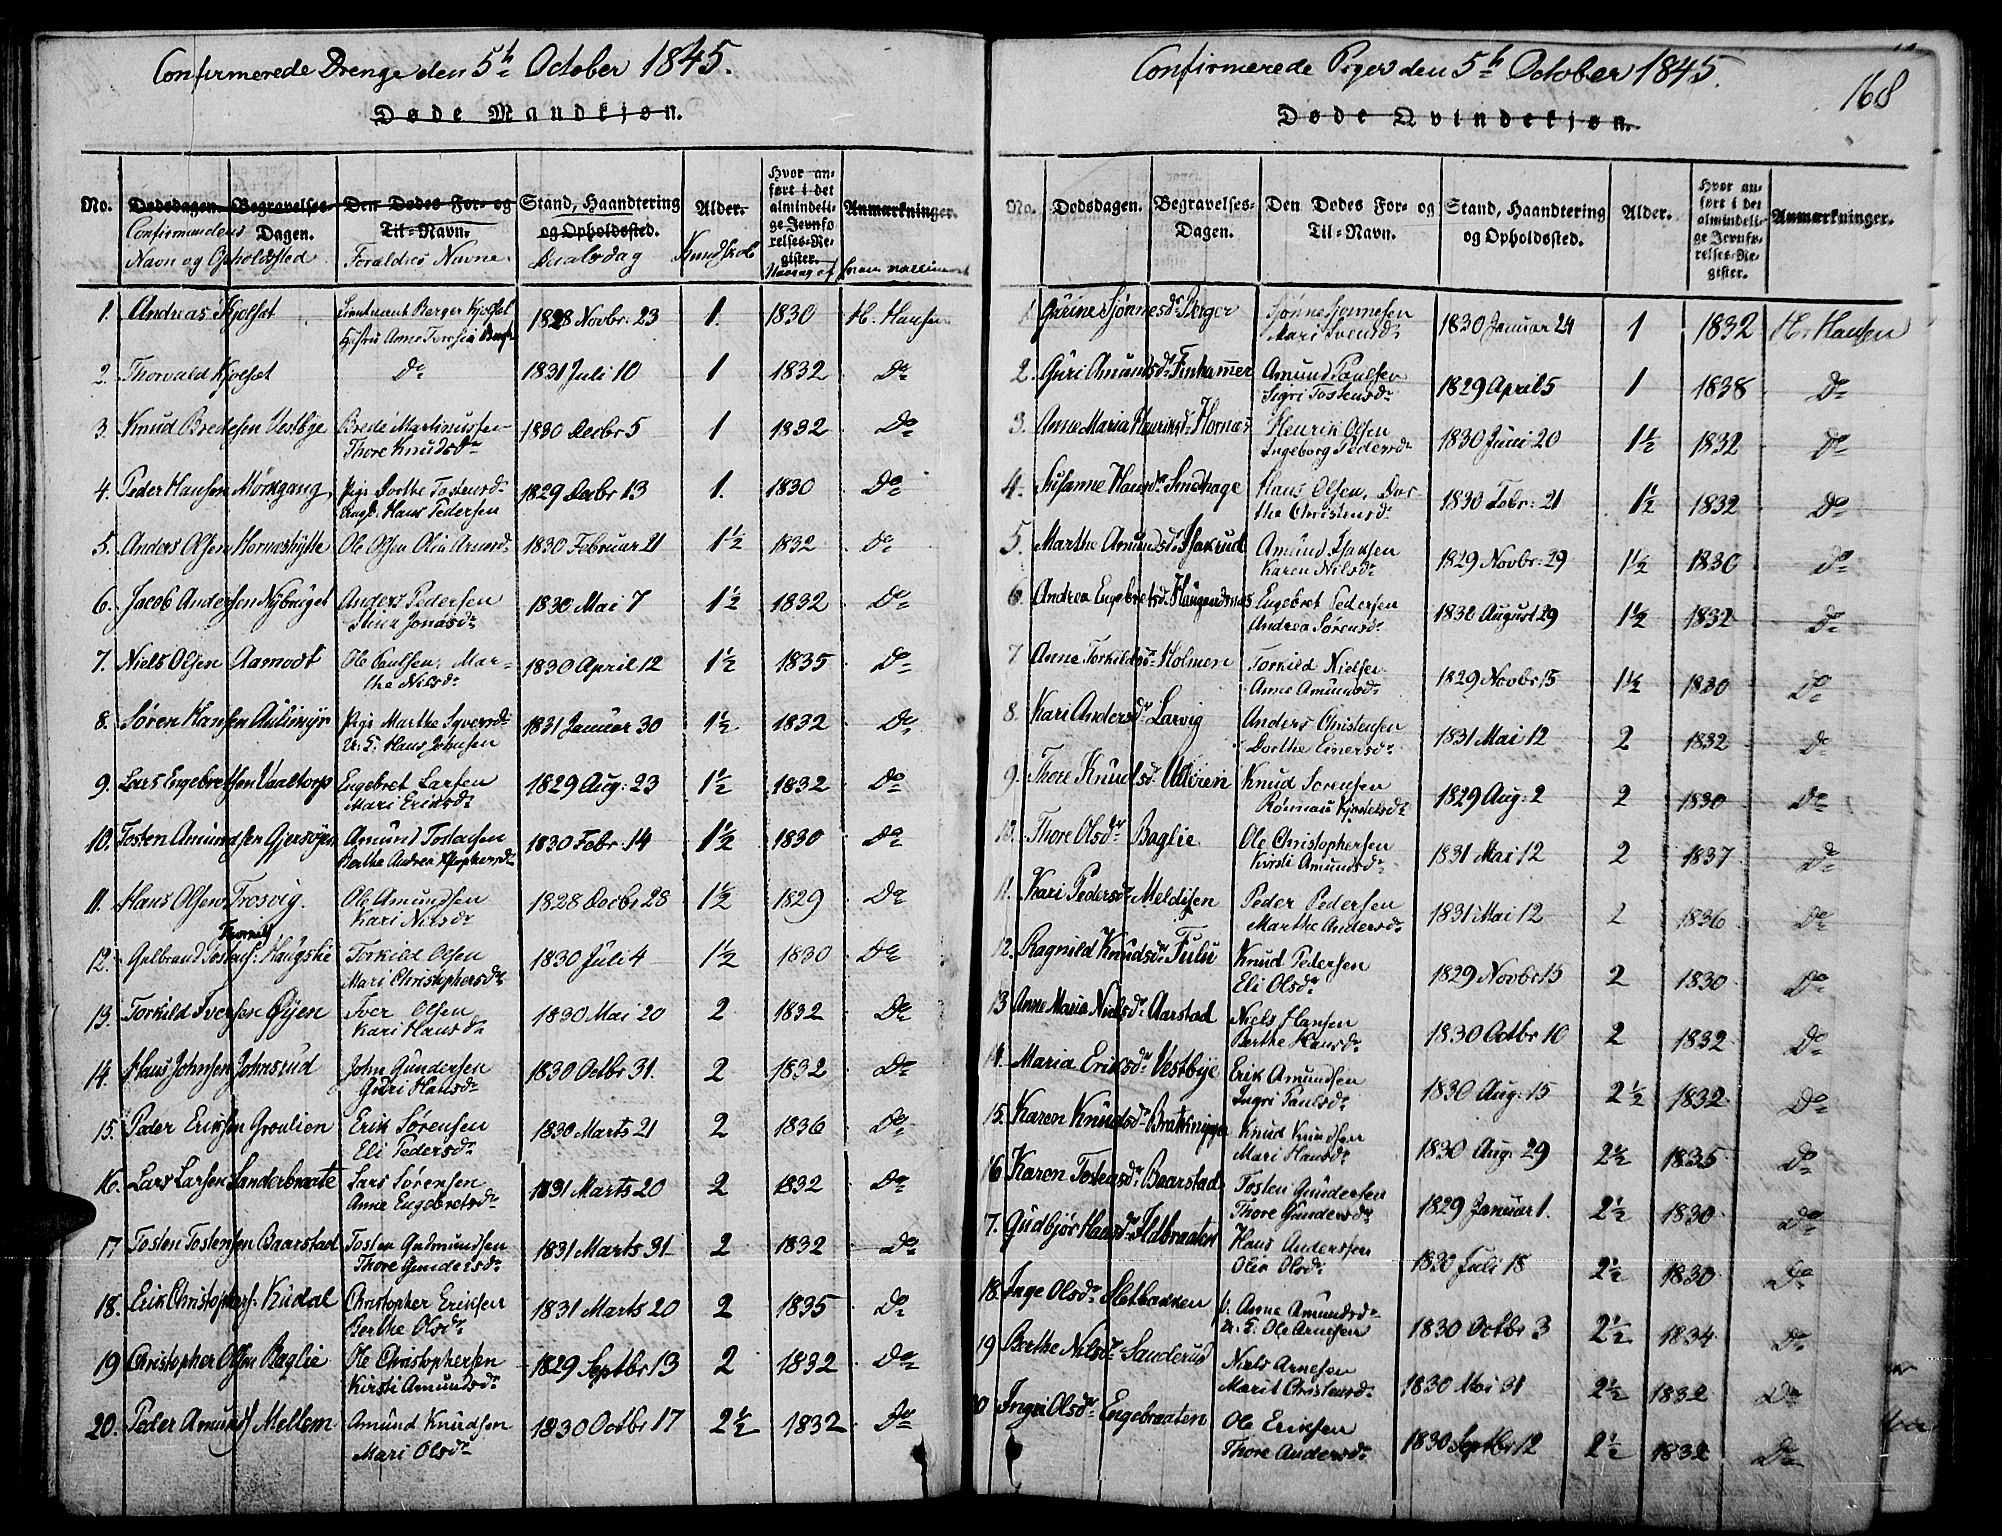 Confirmerede Drenge den 5t October 1845.
Døde Mandkjøn.
No. Dødsdagen. Begravelses-Dagen. Den Dødes For- og Til-Navn. Stand, Haandtering og Opholdssted. Alder. Hvor anført i det almindelige Jevnførelses-Register. Anmærkninger.
Confirmandens Navn og Opholdsted Forældres Navne Daabsdag Kundskab
1. Andreas Kjølset Lieutnant Berger Kjølset 1828 Novbr: 23 1. 1830 H. Hansen
Hustru Anne Teresia
2. Thorvald Kjølset Do 1831 Juli 10 1 1832 Do
3. Knud Bredesen Vestbye Brede Martinussen 1830 Decbr 5 1 1832 Do
Thore Knudsdr
4. Peder Hansen Mörkgang Pige Dorthe Tostensdr 1829 Decbr 13 1. 1830 Do
Hans Pedersen
5. Anders Olsen Hornæshytte Ole Olsen Olia Arnesdr 1830 Februar 21 1½ 1832 Do
6. Jacob Andersen Nybruget Anders Pedersen 1830 Mai 7 1½ 1832 Do
Stina Jonasdr
7. Niels Olsen Aamodt Ole Paulsen. Mar- 1830 April 12 1½ 1835 Do
the Nilsdr
8. Søren Hansen Aulimyr Pige Marthe Syversdr 1831 Januar 30 1½ 1832 Do
U. F. Hans Johnsen
9. Lars Engebretsen Vaaltorp Engebret Larsen 1829 Aug: 23 1½ 1832 Do
Mari Eriksdr
10. Tosten Amundsen Gjersøyen Amund Tostensen 1830 Febr. 14 1½ 1830 Do
Berthe Andrea
11. Hans Olsen Trosvig. Ole Amundsen 1828 Decbr 28 1½ 1829 Do
Kari Nilsdr
12. Gulbrand Haugstie Torkild Olsen 1830 Juli 4 1½ 1830 Do
Mari Christophersdr
13. Torkild Iversen Øyen Iver Olsen 1830 Mai 20 2 1832 Do
Kari Hansdr
14. Hans Johnsen Johnsrud John Gundersen 1830 Octbr 31. 2 1832 Do
Guri Hansdr
15. Peder Eriksen Groulien Erik Sørensen 1830 Marts 21 2 1836 Do
Eli Pedersdr
16. Lars Larsen Sanderbraate Lars Sørensen 1831 Marts 20 2 1832 Do
Anne Engebretsdr
17 Tosten Tostensen Baarstad Tosten Gudmundsen 1831 Marts 31 2 1832 Do
Thore Gundersdr
18. Erik Christophers: Kudal Christopher Eriksen 1831 Marts 20 2 1835 Do
Berthe Olsdr
19 Christopher Olsen Baglie Ole Christophersen 1829 Septbr 13 2 1832 Do
Kirsti Amundsdr
20. Peder Amunds Mellem Amund Knudsen 1830 Octbr 17 2½ 1832 Do
Mari Olsdr
Confirmerede Piger den 5t October 1845.
168
Døde Qvindekjøn.
No. Dødsdagen. Begravelses-Dagen. Den Dødes For- og Til-Navn. Stand, Haandtering og Opholdssted. Alder. Hvor anført i det almindelige Jevnførelses-Register. Anmærkninger.
1 Gurine Sjønnesdr Berger Sjønne Sjønnesen 1830 Januar 24 1 1832 H. Hansen
Mari Svensdr
2. Guri Amundsdr Finhammer Amund Paulsen 1829 April 5 1 1838 Do
Sigri Tostensdr
3. Anne Maria Henriksd. Hornæs Henrik Olsen 1830 Juni 20 1½ 1832 Do
Ingeborg Pedersdr
4. Susanne Hansdr Sundhage Hans Olsen, Dor 1830 Febr: 21 1½ 1832 Do
the Christensdr
5. Marthe Amundsdr Isakrud Amund Isaksen 1829 Novbr: 29 1½ 1830 Do
Karen Nilsdr
6. Andrea Engebretsd. Haugeadsnæs Engebret Pedersen 1830 August 29 1½ 1832 Do
Andrea Sørensdr
7 Anne Torkildsdr Holmen Torkild Nielsen 1829 Novbr 15 1½ 1830 Do
Anne Amundsdr
8. Kari Andersdr Larvig Anders Christensen 1831 Mai 12 2 1832 Do
Dorthe Einersdr
9. Thore Knudsdr Ulveren Knud Sørensen 1829 Aug: 2 2 1830 Do
Rønnau Kjeldsdr
10. Thore Olsdr Baglie Ole Christophersen 1831 Mai 12 2 1837 Do
Kirsti Amundsdr
11. Kari Pedersdr Meldisen Peder Pedersen 1831 Mai 12 2 1836 Do
Marthe Andersdr
12. Ragnild Knudsdr Fulu Knud Pedersen 1829 Novbr 15 2 1830 Do
Eli Olsdr
13 Anne Maria Nielsdr Aarstad Niels Hansen 1830 Octbr 10 2 1832 Do
Berthe Hansdr
14. Maria Eriksdr Vestbye Erik Amundsen 1830 Aug: 15 2½ 1832 Do
Ingri Paulsdr
15. Karen Knudsdr Bratknippa Knud Knudsen 1830 Aug: 29 2½ 1835 Do
Mari Hansdr
16 Karen Tostensdr Baarstad Tosten Gundersen 1829 Januar 1. 2½ 1830 Do
Thore Gundersdr
7. Gudbjør Hansdr Ildbraaten Hans Anderssen 1830 Juli 18 2½ 1830 Do
Olia Olsdr
18. Inge Olsdr Sletbakken p. Anne Amundsdr 1830 Octbr 3 2½ 1834 Do
U. F. Ole Arnesen
19 Berthe Nilsdr Sanderud Niels Arnesen 1830 Mai 31 2½ 1832 Do
Marit Christensdr
20 Ingri Olsdr Engebraaten Ole Eriksen 1830 Septbr 12 2½ 1832 Do
Thore Andersdr